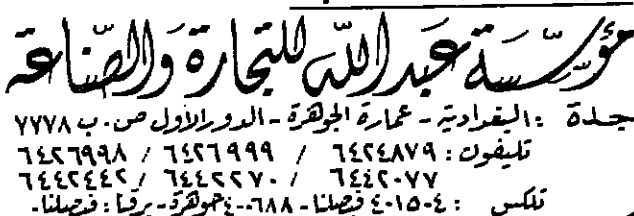 مؤسسة عبد الله للتجارة والصناعة
جدة : البغدادية - عمارة الجوهرة - الدور الأول ص . ب ٧٧٧٨
تليفون : ٦٤٢٤٨٧٩ / ٦٤٢٦٩٩٩ / ٦٤٢٦٩٩٨
٦٤٤٢٠٧٧ / ٦٤٤٢٢٧٠ / ٦٤٤٢٤٤٢
تلكس : ٤٠١٥٠٤ فيصلنا - ٤٠٠٦٨٨ جوهرة - برقيا : فيصلنا -